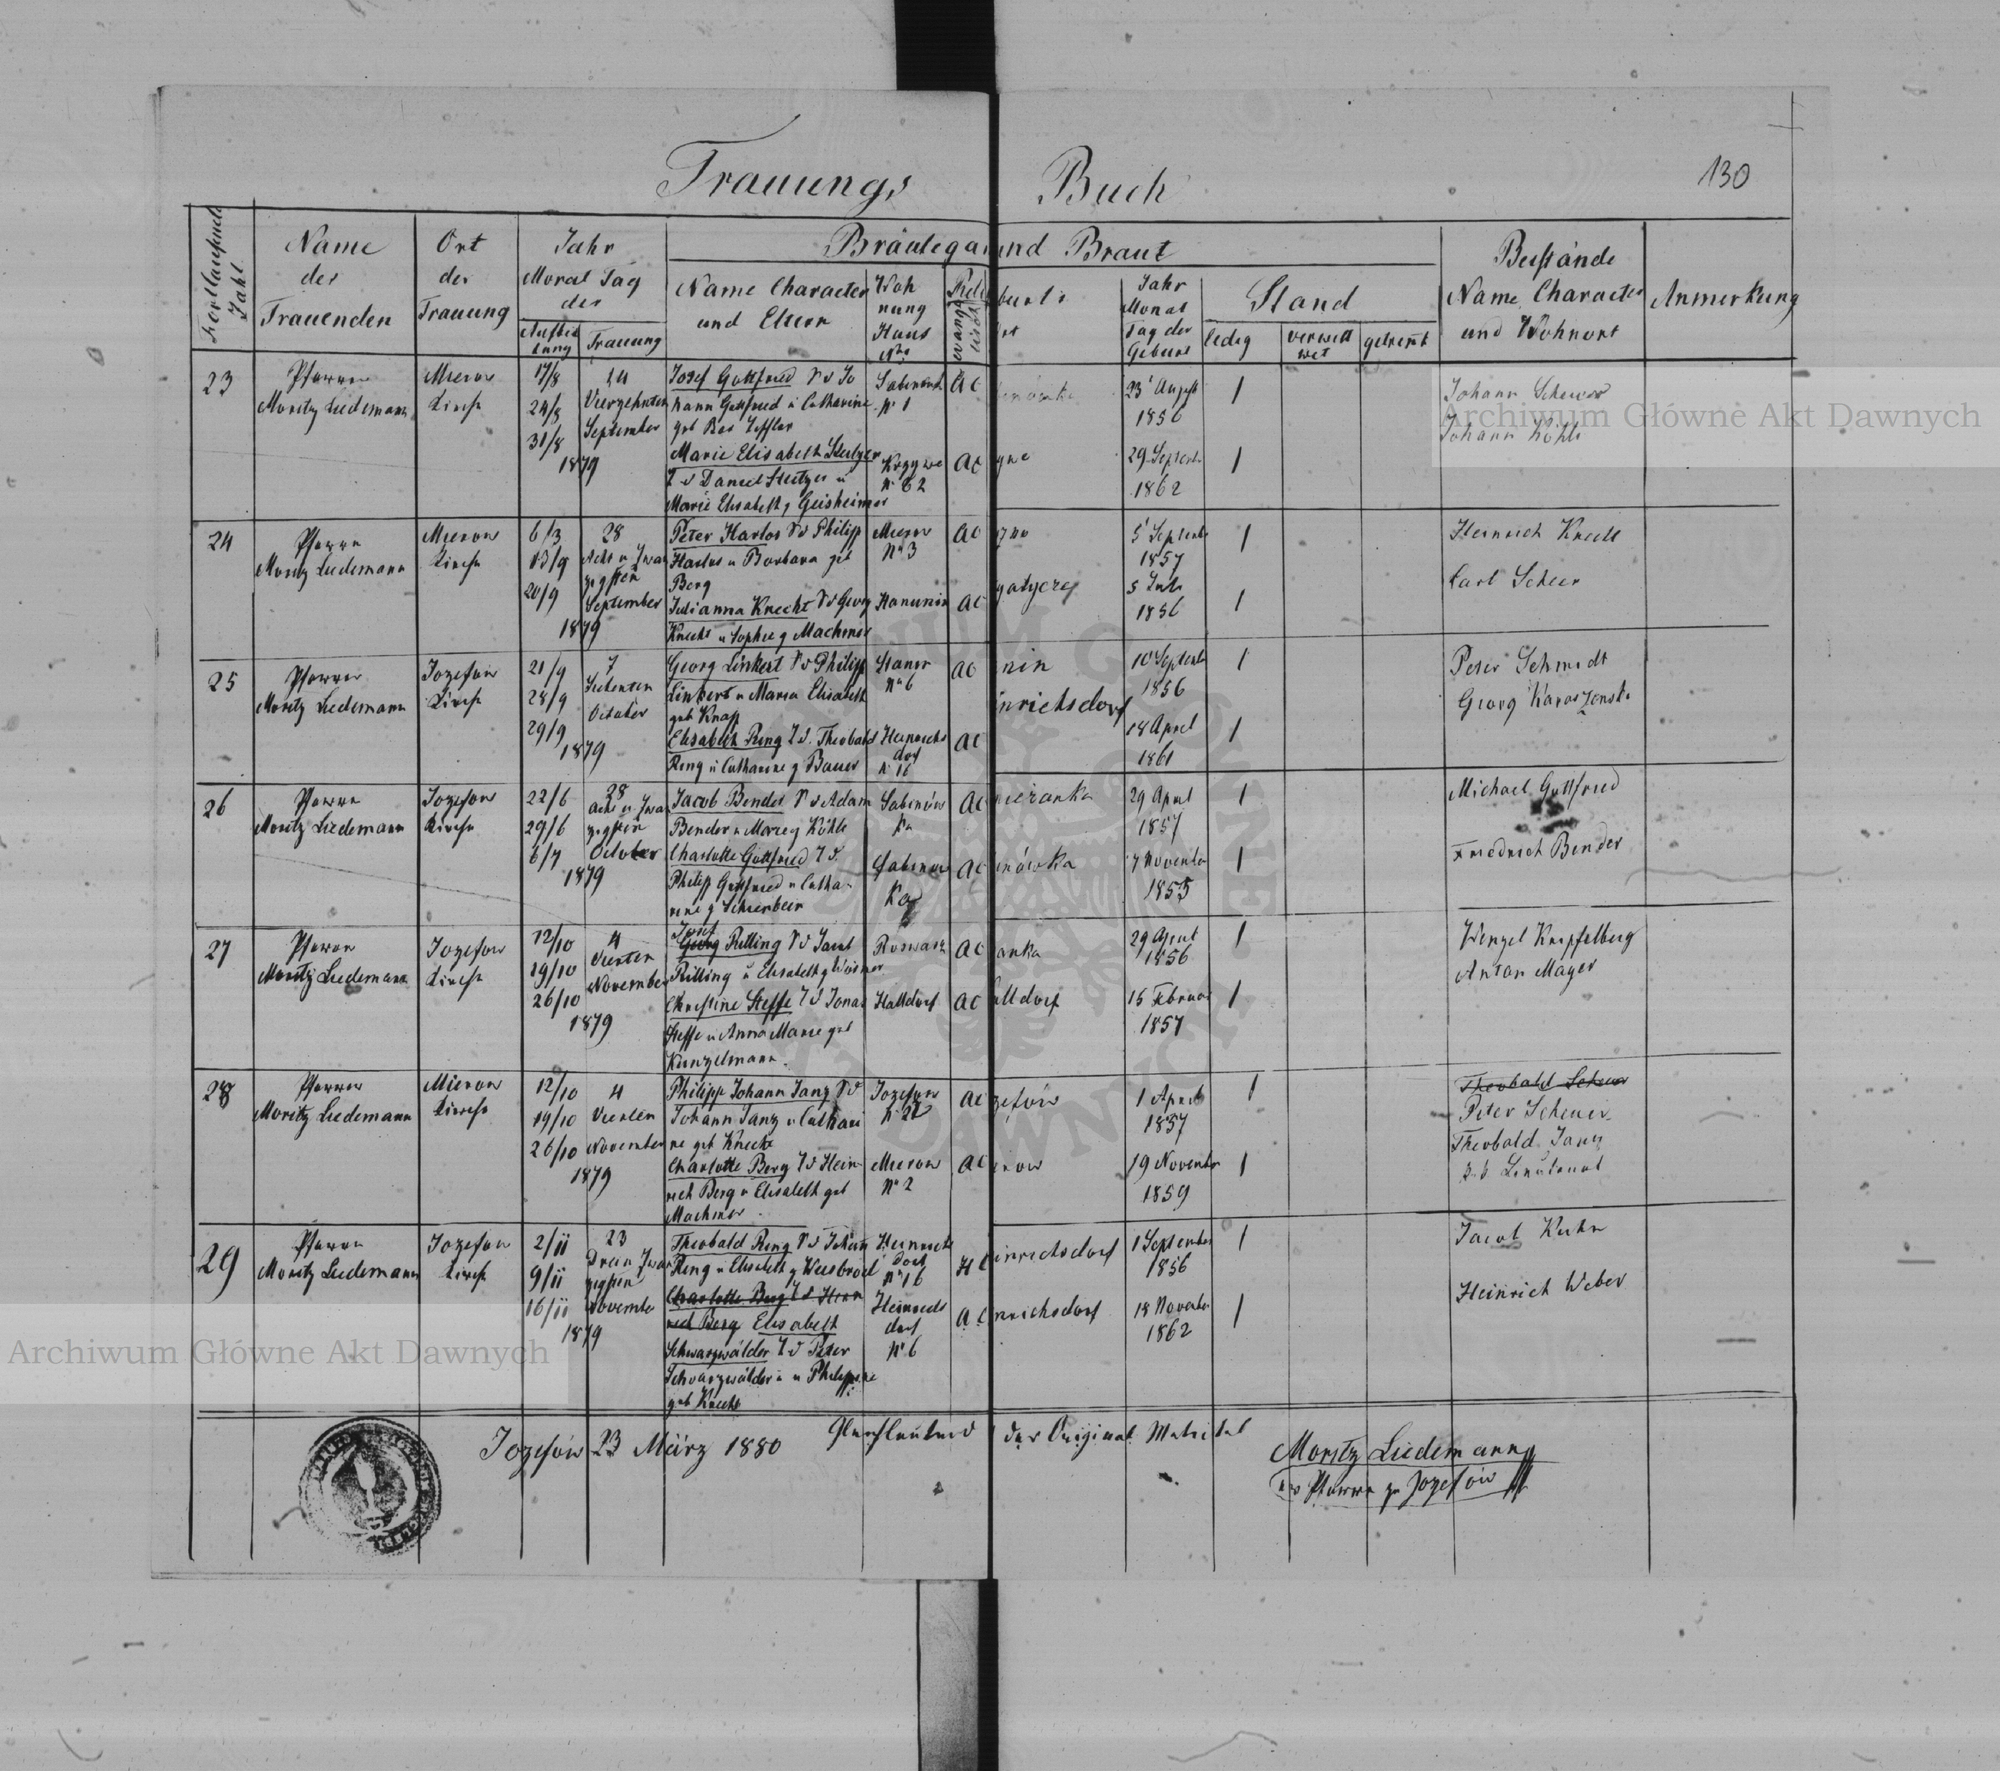 Trauungs Buch
130
Fortlaufende Zahl
Name der Trauenden
Ort der Trauung
Jahr Monat Tag der
Aufbietung
Trauung
Bräutigam und Braut
Name Character und Eltern
Wohnung Haus Nro
Reli
evangelisch
burts
ort
Jahr Monat Tag der Geburt
Stand
ledig
verwittwet
getrennt
Beistände Name Character und Wohnort
Anmerkung
23
Pfarrer
Moritz Liedemann
Mierow
Kirche
17/8
24/8
31/8
14
Vierzehnten
September
1879
Josef Gottfried S v Jo
hann Gottfried u Catharine
N 1
AC
23 August
1856
1
Johann Scheuer
Johann Köhle
Marie Elisabeth Steitzer
T v Daniel Steitzer u
Marie Elisabeth g Geisheimer
N 62
AC
29 Septemb
1862
1
24
Pfarrer
Moritz Liedemann
Mierow
Kirche
6/3
13/9
20/9
28
Acht u Zwan
zigsten
September
1879
Peter Harlos S v Philipp
Harlos u Barbara geb
Berg
Mierow
N 3
AC
5 Septemb
1857
1
Heinrich Knecht
Carl Scheer
Julianna Knecht T v Georg
Knecht u Sophie g Machmer
Hanunin
AC
5 Juli
1856
1
25
Pfarrer
Moritz Liedemann
Jozefow
Kirche
21/9
28/9
29/9
7
Siebenten
October
1879
Georg Linkert S v Philipp
Linkert u Maria Elisabeth
geb Knapp
Stanin
N 6
AC
nin
10 Septemb
1856
1
Peter Schmidt
Georg
Elisabeth Ring T v. Theobald
Ring u Catharine g Bauer
Heinrichs
dorf
N 16
AC
inrichsdorf
18 April
1861
1
26
Pfarrer
Moritz Liedemann
Jozefow
Kirche
22/6
29/6
6/7
28
Acht u. Zwan
zigsten
October
1879
Jacob Bender S v Adam
Bender u Marie g Köhle
Sabinów
ka
AC
29 April
1857
1
Michael Gottfried
Friedrich Bender
Charlotte Gottfried T v.
Philipp Gottfried u Catha-
rine g Schierbeer
Sabinow
ka
AC
inówka
7 November
1855
1
27
Pfarrer
Moritz Liedemann
Jozefow
Kirche
12/10
19/10
26/10
4
Vierten
November
1879
Josef
Georg Rilling S v Jacob
Rilling u Elisabeth g Weismer
AC
anka
29 April
1856
1
Wenzel Knipfelberg
Anton Mayer
Christine Steffe T v Jonas
Steffe u Anna Marie geb
Kunzelmann.
Halldorf
AC
alldorf
15 Februar
1857
1
28
Pfarrer
Moritz Liedemann
Mierow
Kirche
12/10
19/10
26/10
4
Vierten
November
1879
Philipp Johann Janz S v
Johann Janz u Cathari
ne geb Knecht
Jozefow
N 22
AC
zefów
1 April
1857
1
Theobald Scheuer
Peter Scheuer
Theobald Janz
Charlotte Berg T v Hein-
rich Berg u Elisabeth geb
Machmer
Mierow
N 2
AC
row
19 November
1859
1
29
Pfarrer
Moritz Liedemann
Jozefow
Kirche
2/11
9/11
16/11
23
Drei u Zwan
zigsten
November
1879
Theobald Ring S v Johann
Ring u Elisabeth g Weisbrod
Heinrichs
dorf
N 16
HC
inrichsdorf
1 September
1856
1
Jacob Kuhn
Heinrich Weber
Charlotte Berg T v Hein
rich Berg Elisabeth
Schwarzwälder T v Peter
Schwarzwälder u Philippine
geb Knecht
Heinrichs
dorf
N 6
AC
nrichsdorf
18 November
1862
1
Jozefów 23 März 1880
Gleichlautend der Original Matrikel
Moritz Liedemann
ev Pfarrer zu Jozefów
Archiwum Główne Akt Dawnych
Archiwum Główne Akt Dawnych